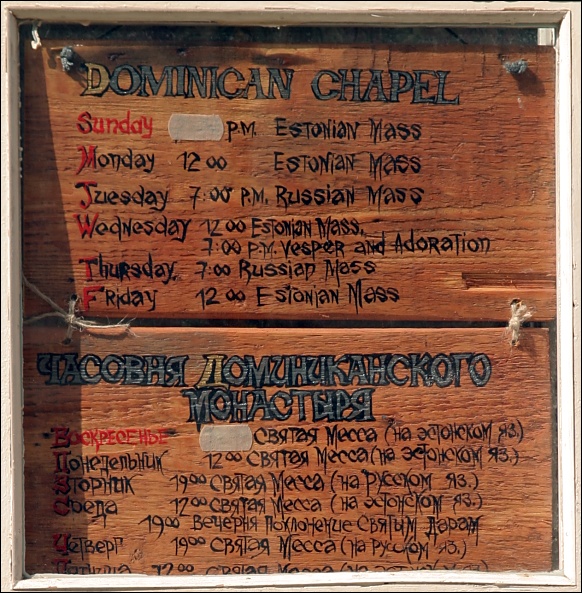 DOMINICAN CHAPEL
Sunday P.M. Estonian Mass
Monday 12 00 Estonian Mass
Tuesday 7:00 P.M. Russian Mass
Wednesday 12 00 Estonian Mass,
7:00 P.M. Vesper and Adoration
Thursday 7:00 Russian Mass
Friday 12 00 Estonian Mass
ЧАСОВНЯ ДОМИНИКАНСКОГО
МОНАСТЫРЯ
Воскресенье Святая Месса (на эстонском яз.)
Понедельник 12 00 Святая Месса (на эстонском яз.)
Вторник 19 00 Святая Месса (на русском яз.)
Среда 12 00 Святая Месса (на эстонском яз.)
19 00 Вечерня поклонение Святым Дарам
Четверг 19 00 Святая Месса (на русском яз.)
Пятница 12 00 Святая Месса (на эстонском яз.)